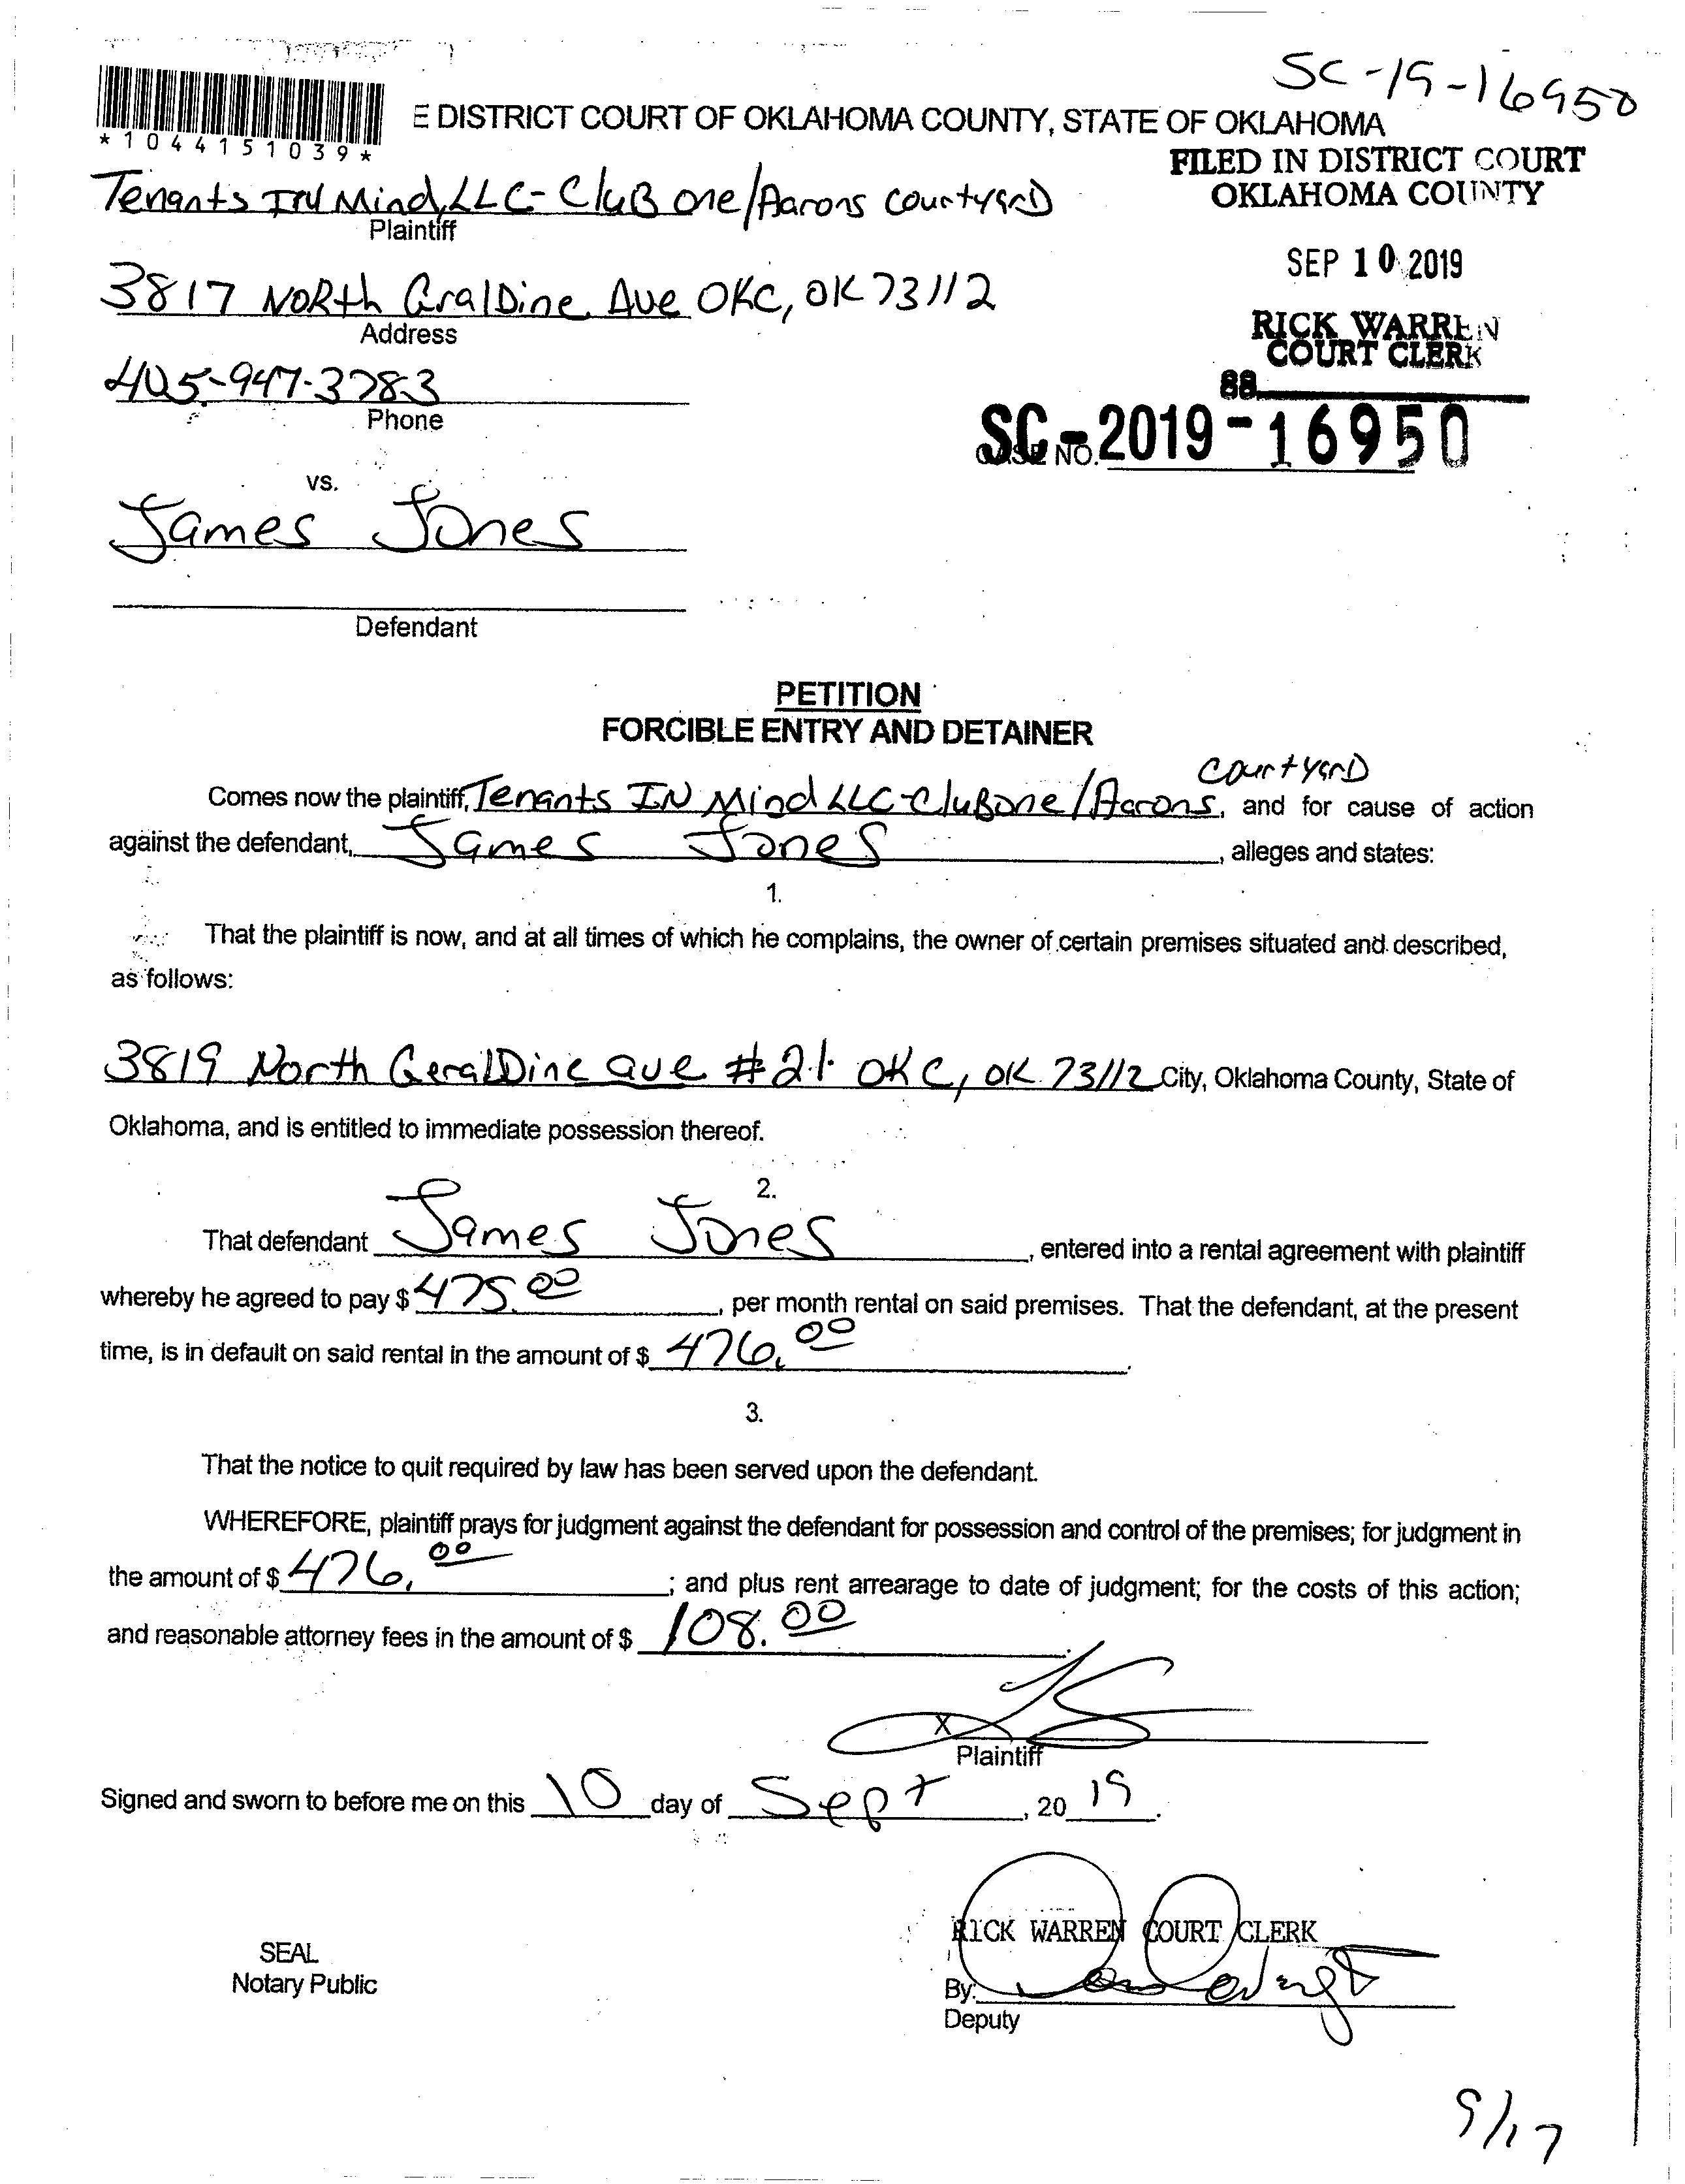 SC-19-16950
E DISTRICT COURT OF OKLAHOMA COUNTY, STATE OF OKLAHOMA
*1044151039*
FILED IN DISTRICT COURT
OKLAHOMA COUNTY
Tenants IN Mind, LLC - CluB one/Aarons courtyarD
Plaintiff
SEP 10 2019
3817 NORth GralDine Ave OKC, OK 73112
Address
RICK WARREN
COURT CLERK
405-947-3783
Phone
88
SC-2019-16950
CASE NO.
vs.
James Jones
Defendant
PETITION
FORCIBLE ENTRY AND DETAINER
courtyarD
Comes now the plaintiff, Tenants IN Mind LLC-cluBone/Aarons, and for cause of action
against the defendant, James Jones, alleges and states:
1.
That the plaintiff is now, and at all times of which he complains, the owner of certain premises situated and described,
as follows:
3819 North GeralDine ave #21 OKC, OK 73112 City, Oklahoma County, State of
Oklahoma, and is entitled to immediate possession thereof.
2.
That defendant James Jones, entered into a rental agreement with plaintiff
whereby he agreed to pay $ 475.00, per month rental on said premises. That the defendant, at the present
time, is in default on said rental in the amount of $ 476.00.
3.
That the notice to quit required by law has been served upon the defendant.
WHEREFORE, plaintiff prays for judgment against the defendant for possession and control of the premises; for judgment in
the amount of $ 476.00; and plus rent arrearage to date of judgment; for the costs of this action;
and reasonable attorney fees in the amount of $ 108.00.
X
Plaintiff
Signed and sworn to before me on this 10 day of Sept, 2019.
RICK WARREN COURT CLERK
SEAL
Notary Public
By:
Deputy
9/17